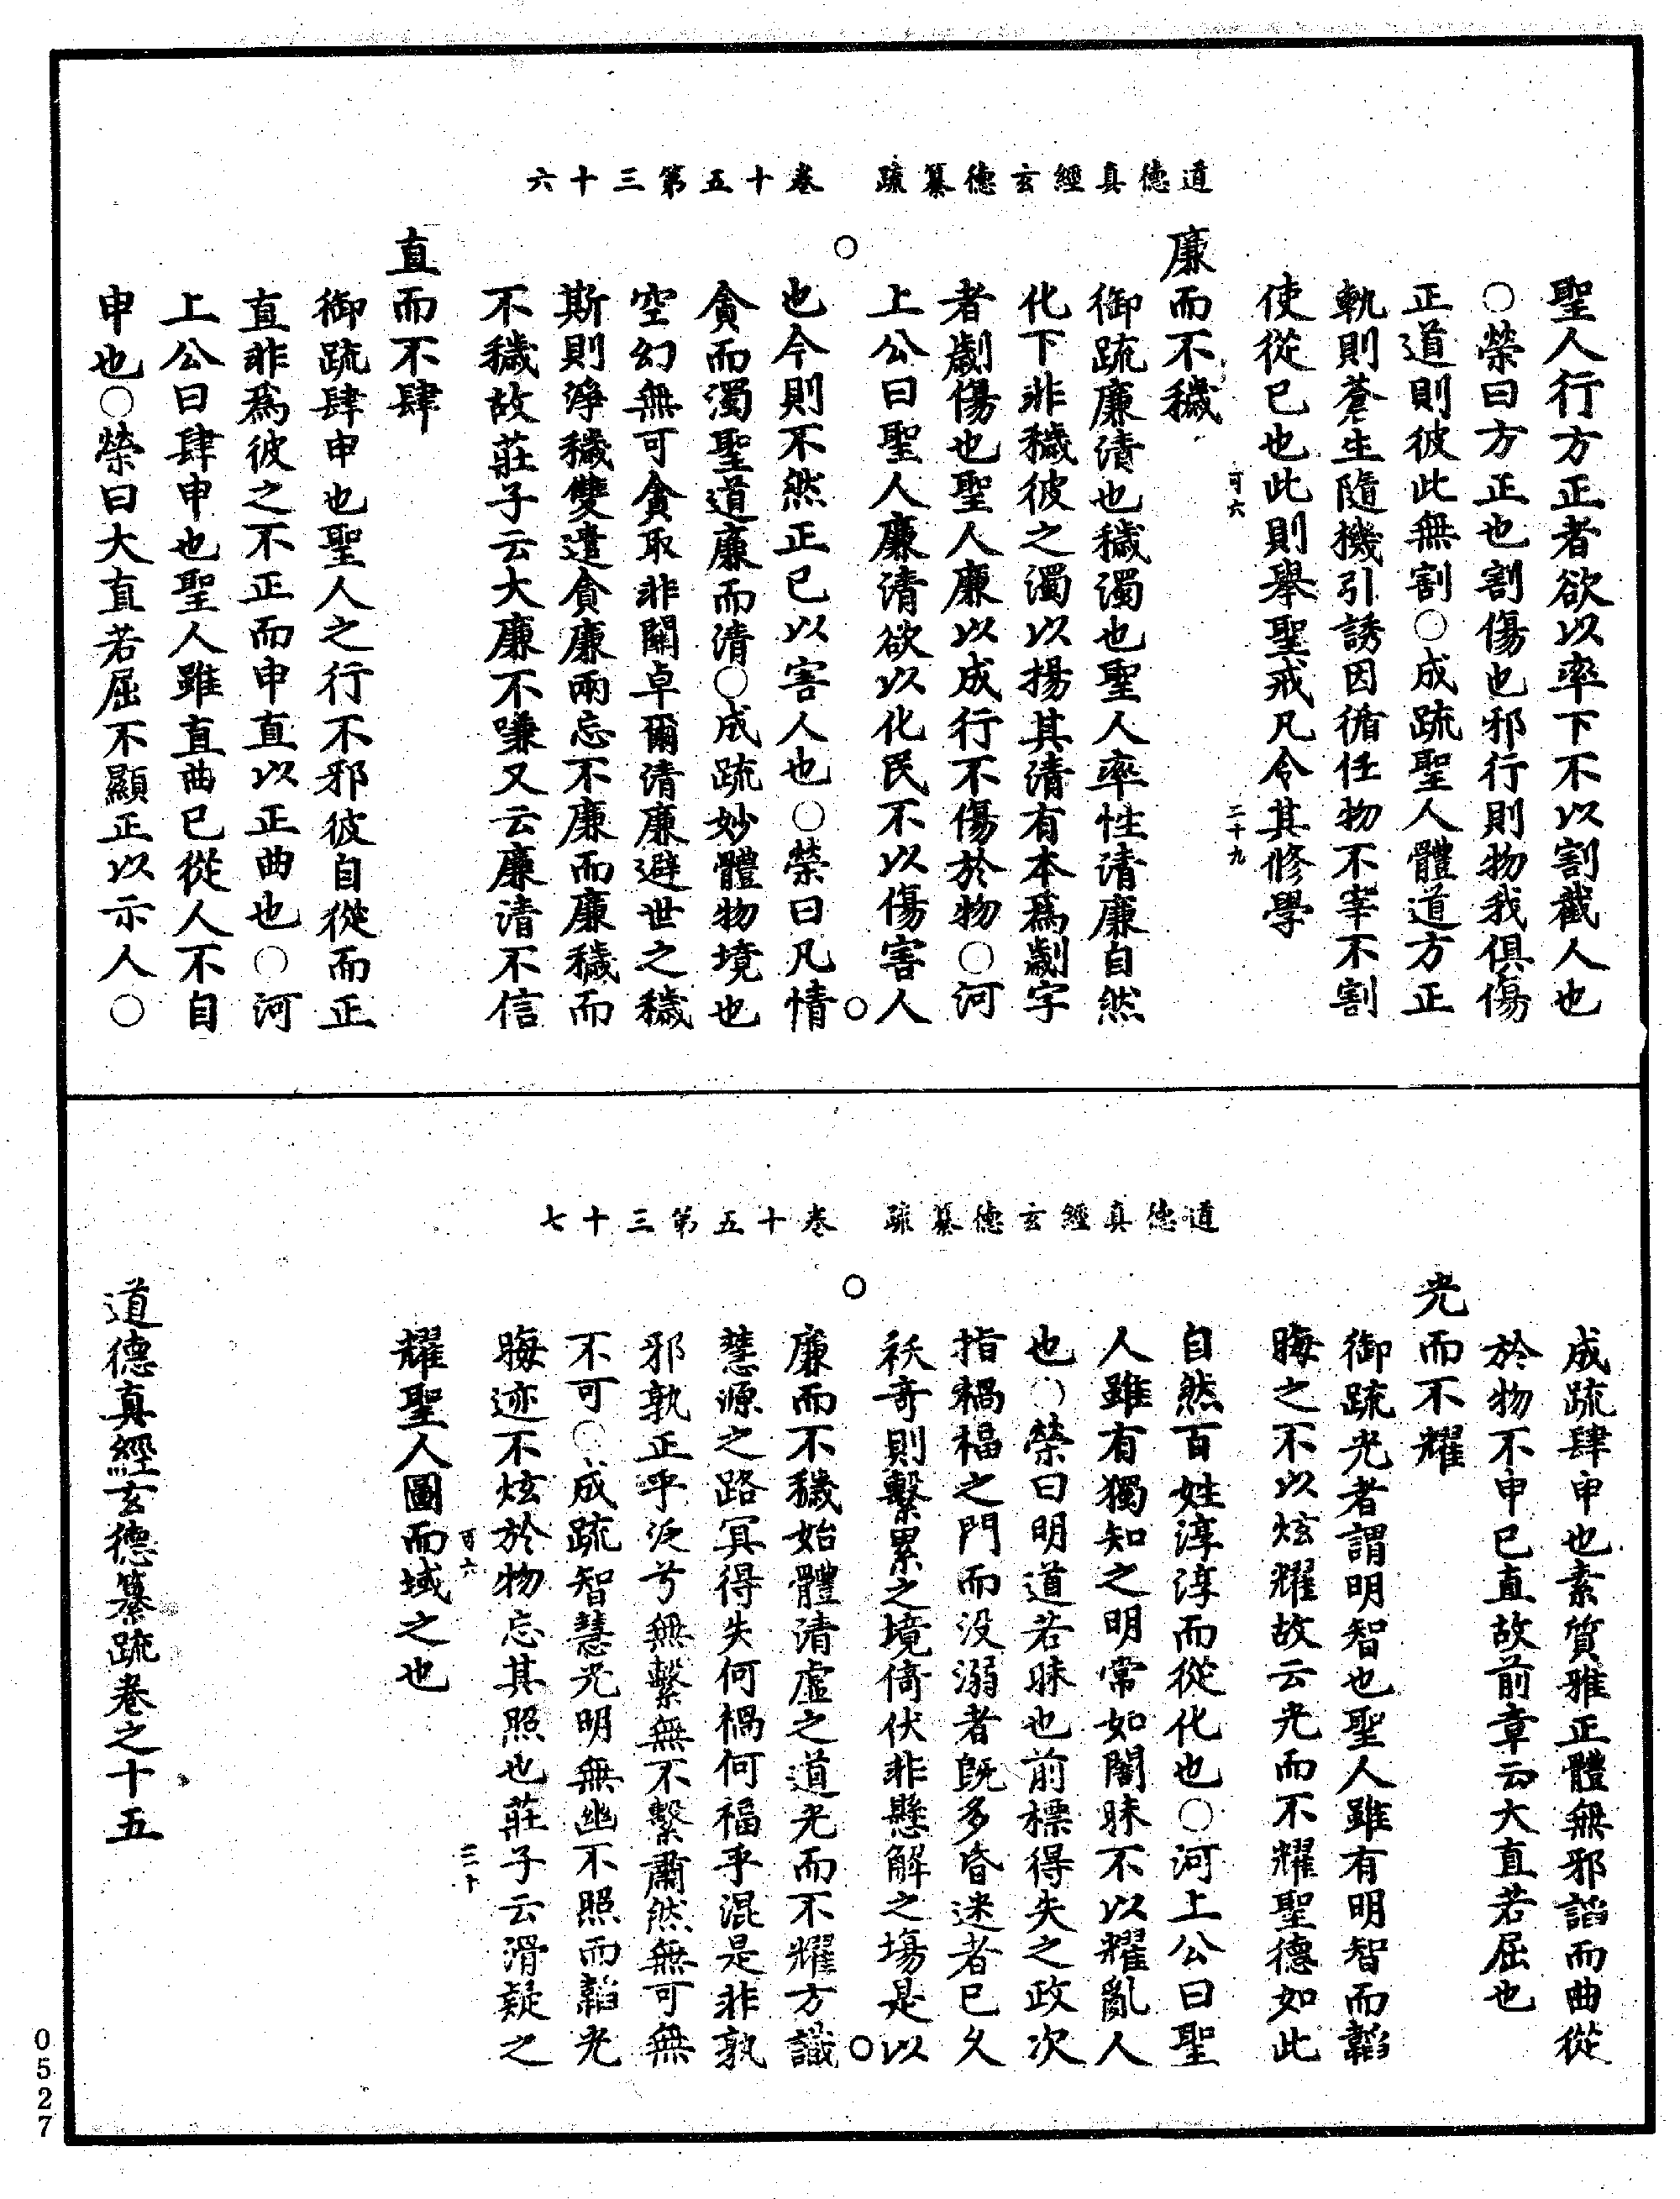 道德真經玄德纂疏　卷十五第三十六
聖人行方正者欲以率下不以割截人也
○榮曰方正也割傷也邪行則物我俱傷
正道則彼此無割○成疏聖人體道方正
軌則蒼生隨機引誘因循任物不宰不割
使從己也此則舉聖戒凡令其修學
可六　二十九
廉而不穢
御疏廉清也穢濁也聖人率性清廉自然
化下非穢彼之濁以揚其清有本爲劌字
者劌傷也聖人廉以成行不傷於物○河
上公曰聖人廉清欲以化民不以傷害人
○　○
也今則不然正已以害人也○榮曰凡情
貪而濁聖道廉而清○成疏妙體物境也
空幻無可貪取非關卓爾清廉避世之穢
斯則淨穢雙遣貪廉兩忘不廉而廉穢而
不穢故莊子云大廉不嗛又云廉清不信
直而不肆
御疏肆申也聖人之行不邪彼自從而正
直非爲彼之不正而申直以正曲也○河
上公曰肆申也聖人雖直曲已從人不自
申也○榮曰大直若屈不顯正以示人○
道德真經玄德纂疏　卷十五第三十七
成疏肆申也素質雅正體無邪諂而曲從
於物不申已直故前章云大直若屈也
光而不耀
御疏光者謂明智也聖人雖有明智而韜
晦之不以炫耀故云光而不耀聖德如此
自然百姓淳淳而從化也○河上公曰聖
人雖有獨知之明常如闇昧不以耀亂人
也○榮曰明道若昧也前標得失之政次
指禍福之門而没溺者既多昏迷者已久
祅奇則繫累之境倚伏非懸解之場是以
○　○
廉而不穢始體清虛之道光而不耀方識
慧源之路冥得失何禍何福乎混是非孰
邪孰正乎泛兮無繫無不繫肅然無可無
不可○成疏智慧光明無幽不照而韜光
晦迹不炫於物忘其照也莊子云滑疑之
可六　三十
耀聖人圖而域之也
道德真經玄德纂疏卷之十五
0527